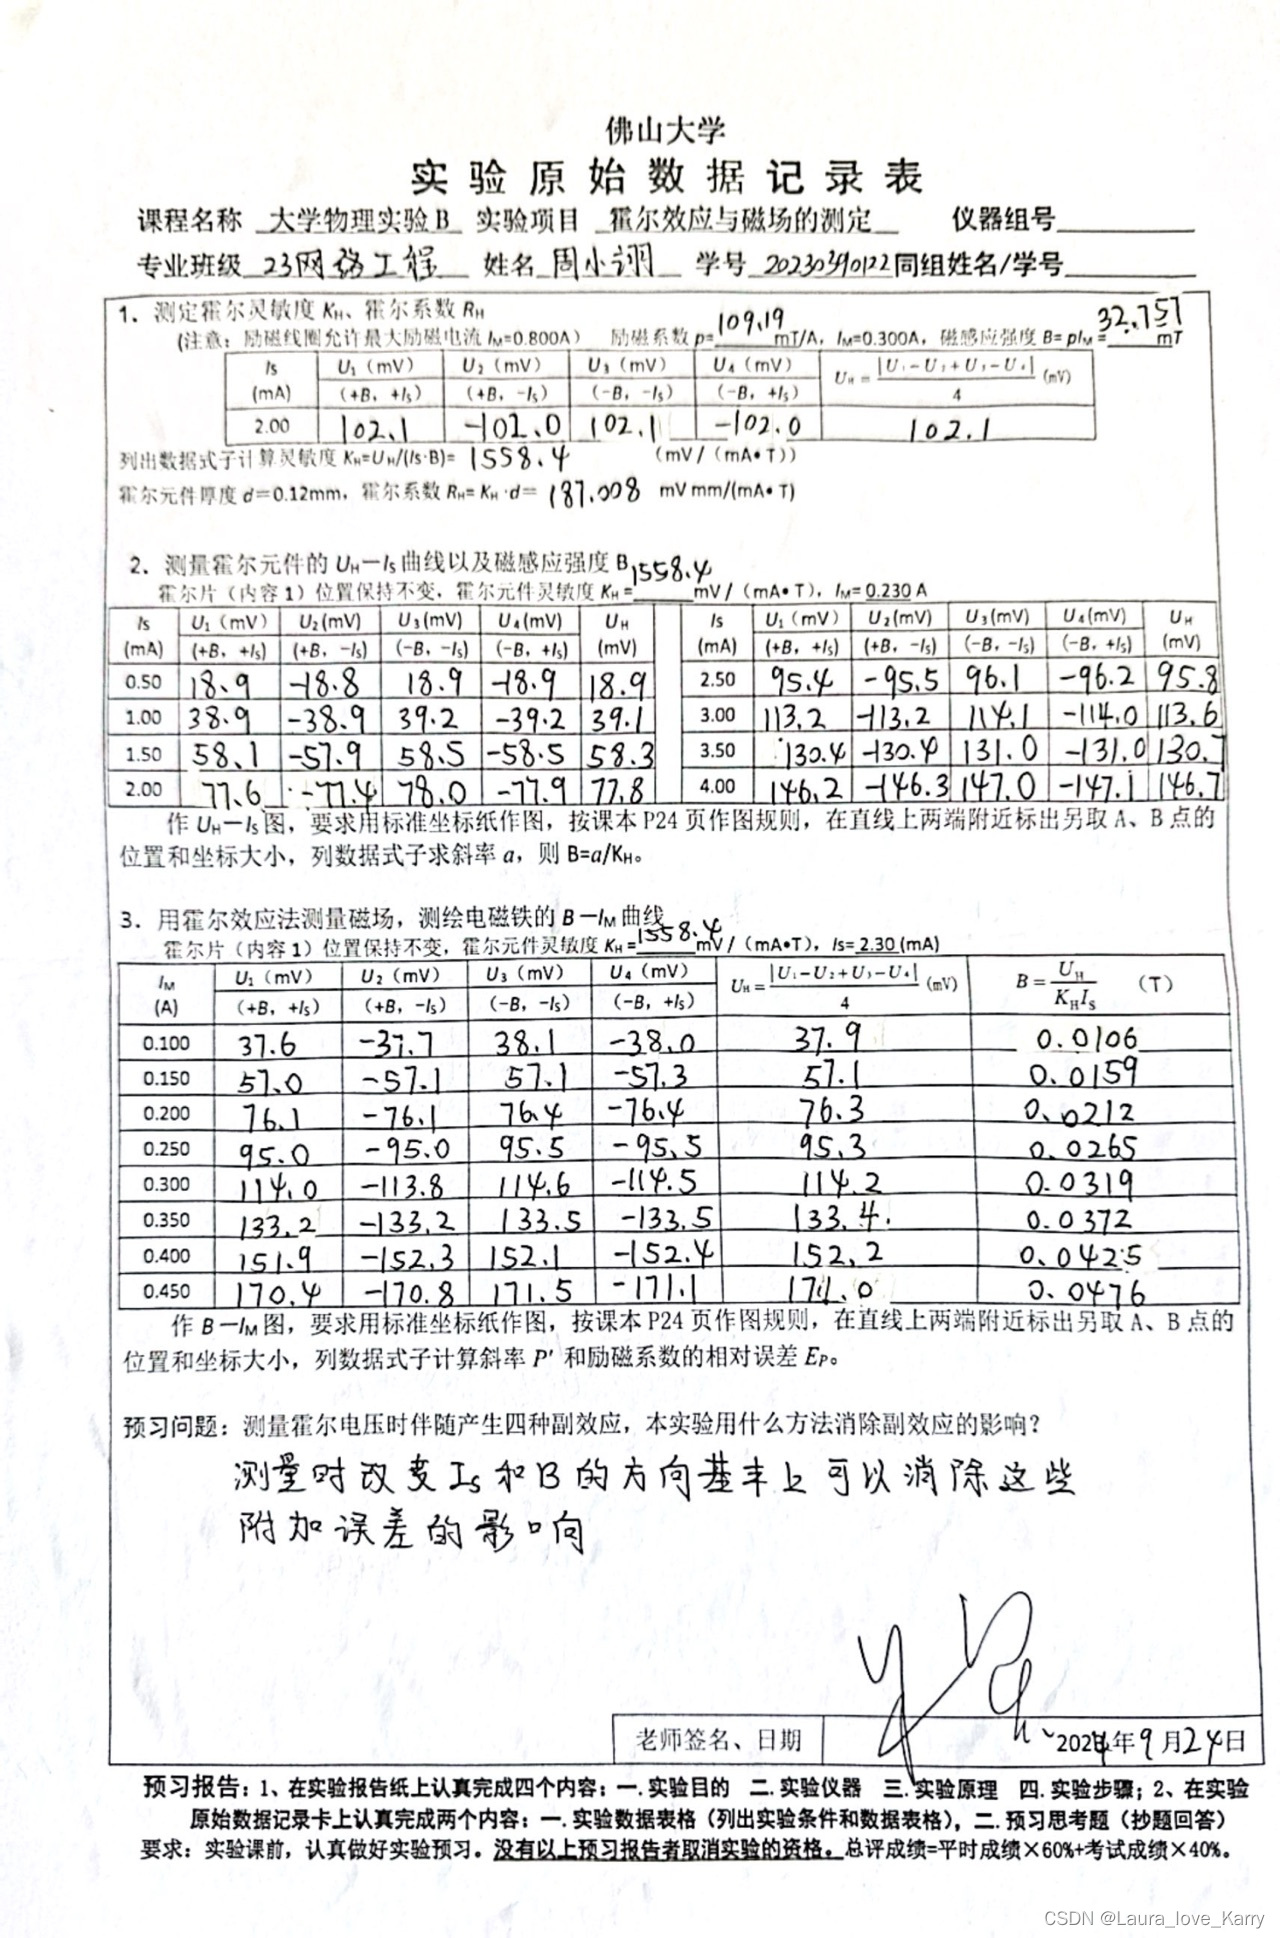 佛山大学
实验原始数据记录表
课程名称 大学物理实验B 实验项目 霍尔效应与磁场的测定 仪器组号
专业班级 23网络工程 姓名 周小翊 学号 同组姓名/学号
1. 测定霍尔灵敏度 KH、霍尔系数 RH
(注意:励磁线圈允许最大励磁电流 IM=0.800A) 励磁系数 p= 109.19 mT/A, IM=0.300A, 磁感应强度 B= pIM = 32.757 mT
Is (mA) U₁ (mV) (+B, +Is) U₂ (mV) (+B, -Is) U₃ (mV) (-B, -Is) U₄ (mV) (-B, +Is) UH = |U₁-U₂+U₃-U₄| / 4 (mV)
2.00 102.1 -102.0 102.1 -102.0 102.1
列出数据式子计算灵敏度 KH=UH/(Is·B)= 1558.4 (mV/(mA•T))
霍尔元件厚度 d=0.12mm, 霍尔系数 RH= KH·d= 187.008 mV mm/(mA•T)
2. 测量霍尔元件的 UH—Is 曲线以及磁感应强度 B
霍尔片(内容1)位置保持不变, 霍尔元件灵敏度 KH = 1558.4 mV/(mA•T), IM= 0.230 A
Is (mA) U₁ (mV) (+B, +Is) U₂(mV) (+B, -Is) U₃(mV) (-B, -Is) U₄(mV) (-B, +Is) UH (mV) Is (mA) U₁ (mV) (+B, +Is) U₂(mV) (+B, -Is) U₃(mV) (-B, -Is) U₄(mV) (-B, +Is) UH (mV)
0.50 18.9 -18.8 18.9 -18.9 18.9 2.50 95.4 -95.5 96.1 -96.2 95.8
1.00 38.9 -38.9 39.2 -39.2 39.1 3.00 113.2 -113.2 114.1 -114.0 113.6
1.50 58.1 -57.9 58.5 -58.5 58.3 3.50 130.4 -130.4 131.0 -131.0 130.7
2.00 77.6 -77.4 78.0 -77.9 77.8 4.00 146.2 -146.3 147.0 -147.1 146.7
作 UH—Is 图, 要求用标准坐标纸作图, 按课本 P24 页作图规则, 在直线上两端附近标出另取 A、B 点的
位置和坐标大小, 列数据式子求斜率 a, 则 B=a/KH。
3. 用霍尔效应法测量磁场, 测绘电磁铁的 B—IM 曲线
霍尔片(内容1)位置保持不变, 霍尔元件灵敏度 KH = 1558.4 mV/(mA•T), Is= 2.30 (mA)
IM (A) U₁ (mV) (+B, +Is) U₂ (mV) (+B, -Is) U₃ (mV) (-B, -Is) U₄ (mV) (-B, +Is) UH = |U₁-U₂+U₃-U₄| / 4 (mV) B = UH / KHIS (T)
0.100 37.6 -37.7 38.1 -38.0 37.9 0.0106
0.150 57.0 -57.1 57.1 -57.3 57.1 0.0159
0.200 76.1 -76.1 76.4 -76.4 76.3 0.0212
0.250 95.0 -95.0 95.5 -95.5 95.3 0.0265
0.300 114.0 -113.8 114.6 -114.5 114.2 0.0319
0.350 133.2 -133.2 133.5 -133.5 133.4 0.0372
0.400 151.9 -152.3 152.1 -152.4 152.2 0.0425
0.450 170.4 -170.8 171.5 -171.1 171.0 0.0476
作 B—IM 图, 要求用标准坐标纸作图, 按课本 P24 页作图规则, 在直线上两端附近标出另取 A、B 点的
位置和坐标大小, 列数据式子计算斜率 P′ 和励磁系数的相对误差 EP。
预习问题: 测量霍尔电压时伴随产生四种副效应, 本实验用什么方法消除副效应的影响?
测量时改变Is和B的方向基本上可以消除这些
附加误差的影响
老师签名、日期 2024年9月24日
预习报告: 1、在实验报告纸上认真完成四个内容: 一.实验目的 二.实验仪器 三.实验原理 四.实验步骤; 2、在实验
原始数据记录卡上认真完成两个内容: 一.实验数据表格(列出实验条件和数据表格), 二.预习思考题(抄题回答)
要求: 实验课前, 认真做好实验预习。没有以上预习报告者取消实验的资格。总评成绩=平时成绩×60%+考试成绩×40%。
CSDN @Laura_love_Karry